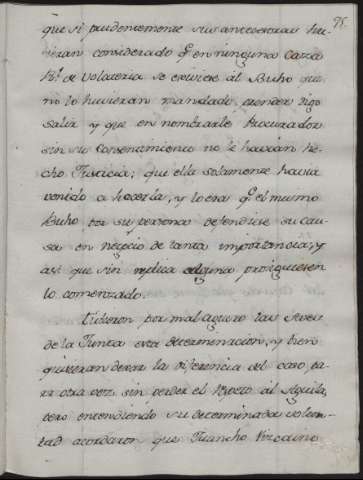 75.
que si prudentemente sus antecesoras hu-
vieran considerado q.e en ninguna Cassa
R.l de Volateria se excluiese al Buho que
no lo huvieran mandado prender digo
salir y que en nombrarle Procurador
sin su Consentimiento no le havian he-
cho Justicia; que ella solamente havia
venido a hacerla, y lo era q.e el mismo
Buho por su persona defendiese su cau-
sa en negocio de tanta importancia, y
asi que sin replica alguna prosiguiesen
lo comenzado.
Tubieron por mal aguero las Aves
de la Junta esta determinacion, y bien
quisieran dexar la diferencia del caso, pa-
ra otra vez sin perder el respeto al Aguila,
pero entendiendo su determinada volun-
tad acordaron que Juancho Vizcaino